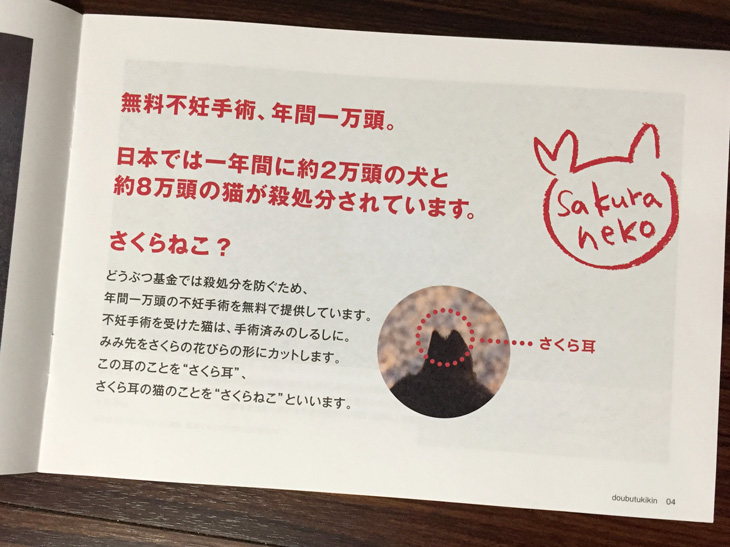 無料不妊手術、年間一万頭。
日本では一年間に約2万頭の犬と
約8万頭の猫が殺処分されています。
sakura
neko
さくらねこ？
どうぶつ基金では殺処分を防ぐため、
年間一万頭の不妊手術を無料で提供しています。
不妊手術を受けた猫は、手術済みのしるしに。
みみ先をさくらの花びらの形にカットします。
この耳のことを“さくら耳”、
さくら耳の猫のことを“さくらねこ”といいます。
さくら耳
doubutukikin 04